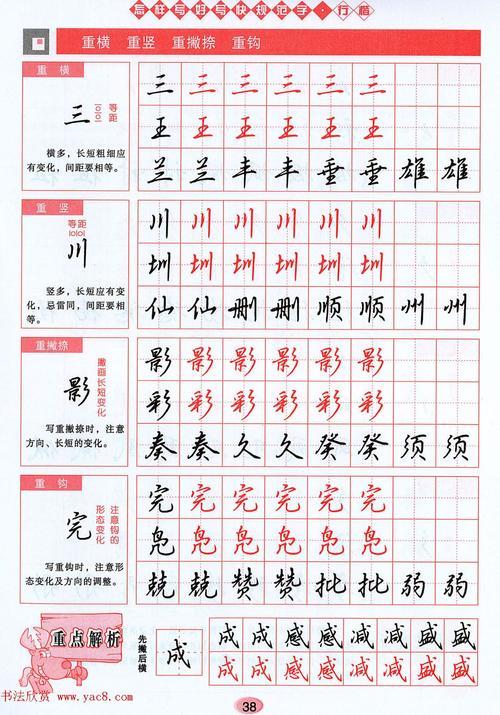 怎样写好写快规范字·行楷
重横 重竖 重撇捺 重钩
重横
三
等距
横多，长短粗细应
有变化，间距要相等。
三 三 三 三 三 三
王 王 王 王 王 王
兰 兰 丰 丰 垂 垂 雄 雄
重竖
等距
川
竖多，长短应有变
化，忌雷同，间距要相
等。
川 川 川 川 川 川
圳 圳 圳 圳 圳 圳
仙 仙 删 删 顺 顺 州 州
重撇捺
影
撇画长短变化
写重撇捺时，注意
方向、长短的变化。
影 影 影 影 影 影
彩 彩 彩 彩 彩 彩
奏 奏 久 久 癸 癸 须 须
重钩
完
注意钩的
形态变化
写重钩时，注意形
态变化及方向的调整。
完 完 完 完 完 完
凫 凫 凫 凫 凫 凫
兢 兢 赞 赞 批 批 弱 弱
重点解析
先撇后横
成
成 成 感 感 减 减 盛 盛
成 成 感 感 减 减 盛 盛
书法欣赏 www.yac8.com
38